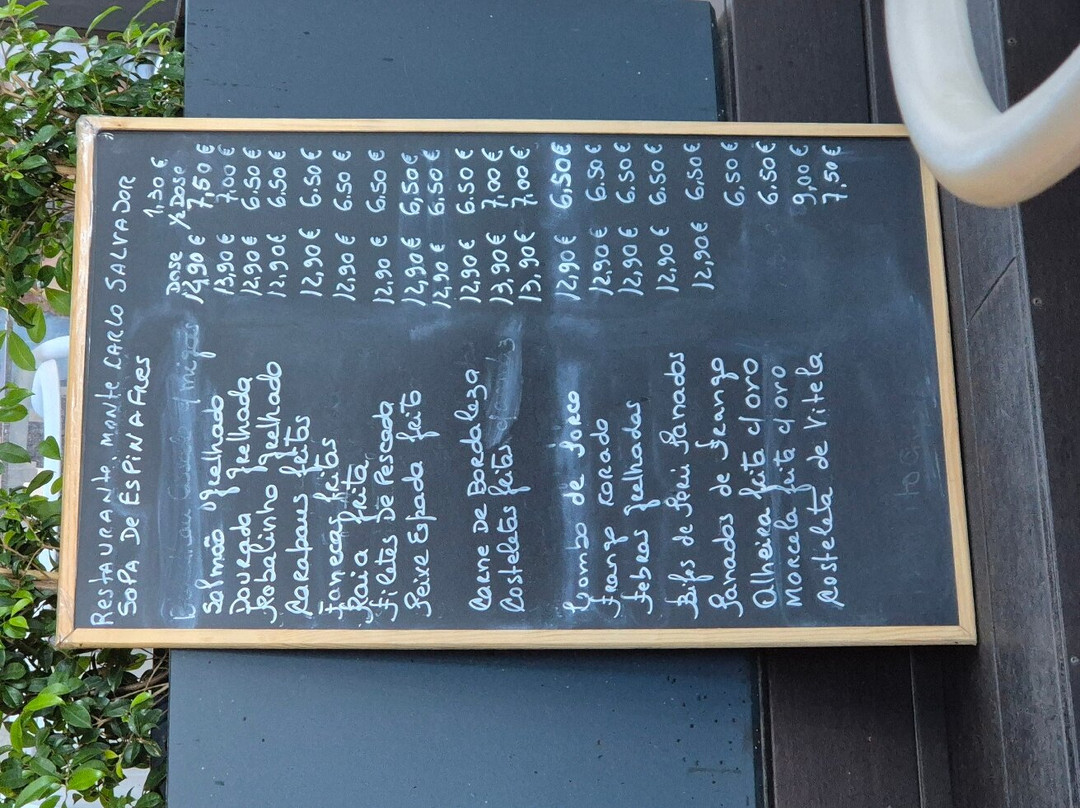 RESTAURANTE MONTE CARLO SALVADOR
SOPA DE ESPINAFRES 1,30 €
Dose ½ Dose
/migas 12,90 € 7,50 €
Salmão grelhado 13,90 € 7,00 €
Dourada grelhada 12,90 € 6.50 €
Robalinho grelhado 12,90 € 6.50 €
Carapaus feitos 12,90 € 6.50 €
Fanecas feitas 12,90 € 6.50 €
Raia frita 12,90 € 6.50 €
Filetes De Pescada 12,90 € 6,50 €
Peixe Espada feito 12,90 € 6.50 €
Carne De Bordaleza 12,90 € 6.50 €
Costeletas feitas 13,90 € 7,00 €
13,90 € 7,00 €
Lombo de Porco 12,90 € 6,50 €
Frango corado 12,90 € 6.50 €
Febras grelhadas 12,90 € 6.50 €
Bifs de Peru Panados 12,90 € 6.50 €
Panados de Frango 12,90 € 6,50 €
Alheira feita c/ovo 6,50 €
Morcela feita c/ovo 6.50 €
Costeleta de Vitela 9,00 €
7,50 €